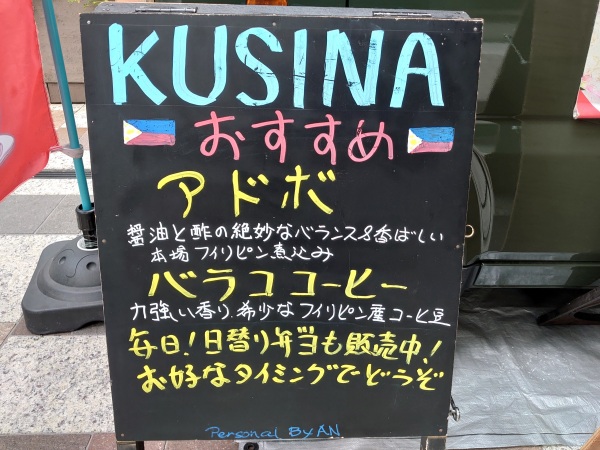 KUSINA
おすすめ
アドボ
醤油と酢の絶妙なバランス&香ばしい
本場フィリピン煮込み
バラココーヒー
力強い香り、希少なフィリピン産コーヒ豆
毎日!日替り弁当も販売中!
お好なタイミングでどうぞ
Personal By AN